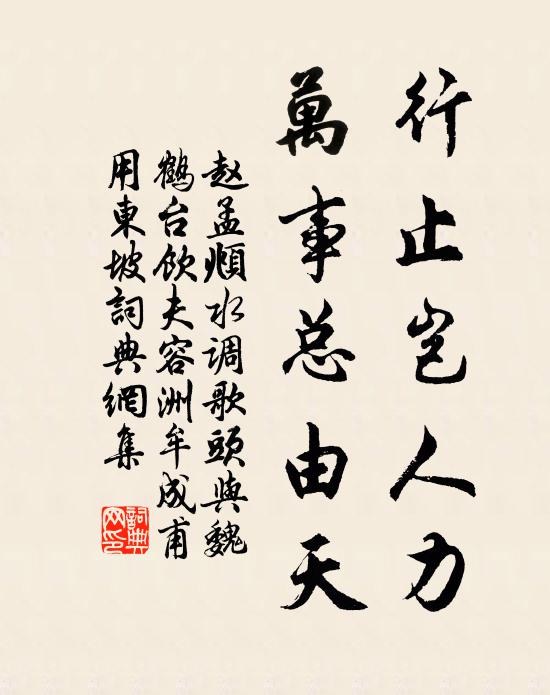 行止岂人力
萬事总由天
赵孟頫水调歌頭與魏
鶴台飲夫容洲牟成甫
用東坡詞典網集
詞典
网印